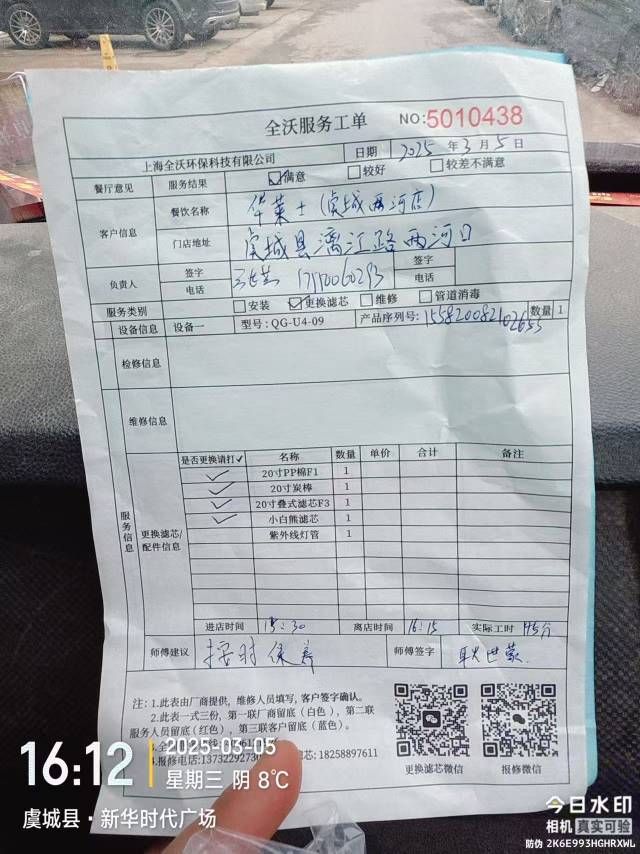 全沃服务工单 NO:5010438
上海全沃环保科技有限公司 日期 2025年3月5日
餐厅意见 服务结果 满意 较好 较差不满意
客户信息 餐饮名称 华莱士(虞城两河店)
门店地址 虞城县漓江路两河口
负责人 签字 电话 签字 电话
服务类别 安装 更换滤芯 维修 管道消毒
设备信息 设备一 型号:QG-U4-09 产品序列号: 数量 1
检修信息
维修信息
服务信息
更换滤芯/配件信息
是否更换请打✓ 名称 数量 单价 合计 备注
✓ 20寸PP棉F1 1
✓ 20寸炭棒 1
✓ 20寸叠式滤芯F3 1
✓ 小白熊滤芯 1
紫外线灯管 1
进店时间 15:30 离店时间 16:15 实际工时 45分
师傅建议 按时保养 师傅签字
注:1.此表由厂商提供,维修人员填写,客户签字确认。
2.此表一式三份,第一联厂商留底(白色),第二联
服务人员留底(红色),第三联客户留底(蓝色)。
4.报修电话:1373229273 芯:18258897611
更换滤芯微信 报修微信
16:12 2025-03-05
星期三 阴 8℃
虞城县·新华时代广场
今日水印
相机 真实可验
防伪 2K6E993HGHRXWL